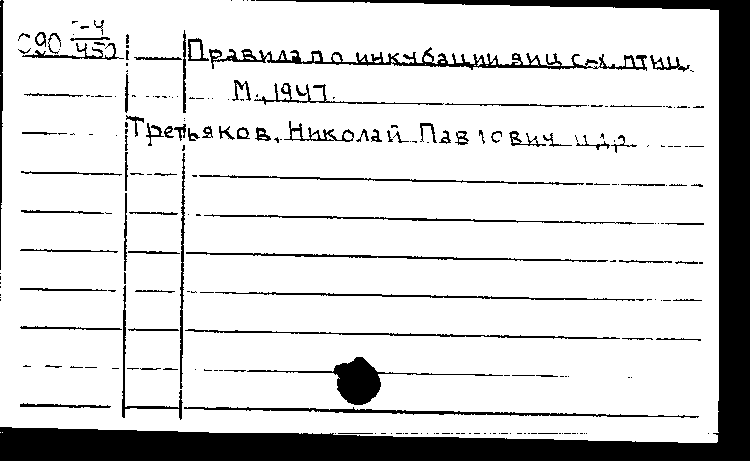 С90 -4/450
Правила по инкубации яиц с-х. птиц.
М., 1947.
Третьяков, Николай Павлович и др.